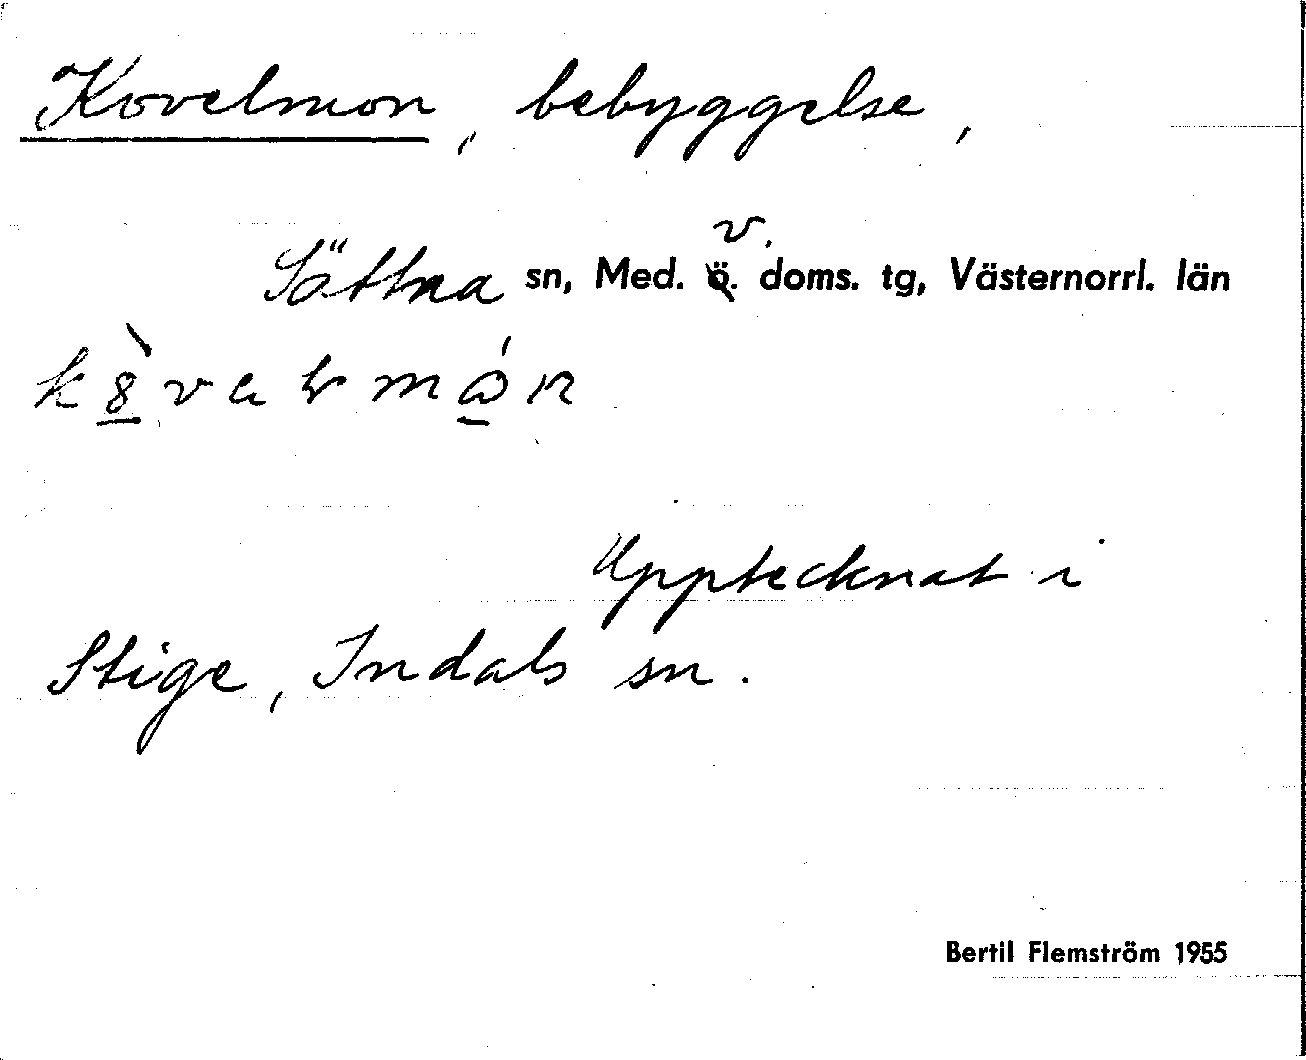 Kovelmon, bebyggelse,
Sättna sn, Med. v. doms. tg, Västernorrl. län
Upptecknat i
Stige, Indals sn.
Bertil Flemström 1955